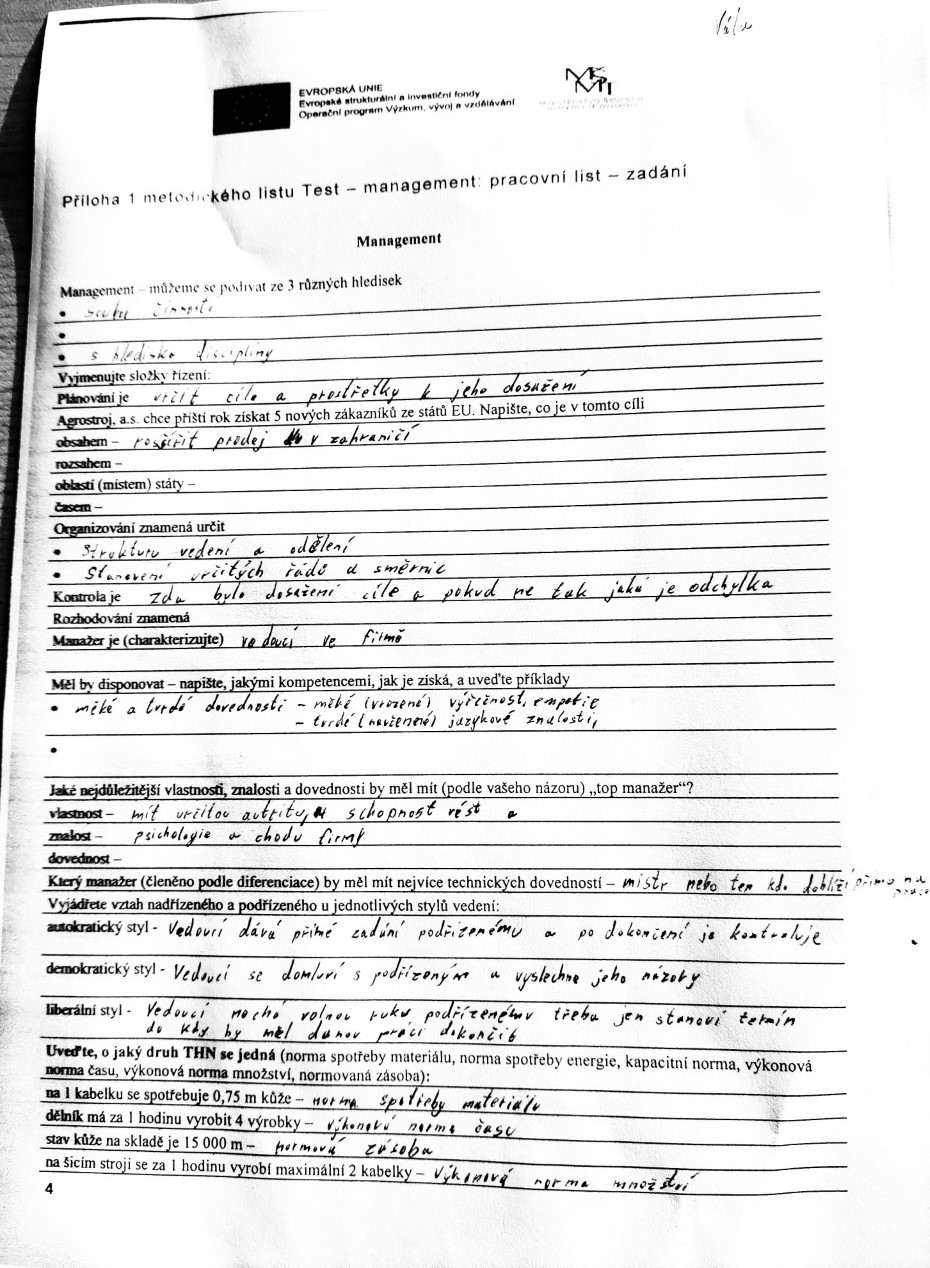 Vála
EVROPSKÁ UNIE
Evropské strukturální a investiční fondy
Operační program Výzkum, vývoj a vzdělávání
Příloha 1 metodického listu Test – management: pracovní list – zadání
Management
Management – můžeme se podívat ze 3 různých hledisek
• činností
•
• s hlediska disciplíny
Vyjmenujte složky řízení:
Plánování je určit cíle a prostřetky k jeho dosažení
Agrostroj, a.s. chce příští rok získat 5 nových zákazníků ze států EU. Napište, co je v tomto cíli
obsahem – rozšířit prodej v zahraničí
rozsahem –
oblastí (místem) státy –
časem –
Organizování znamená určit
• Strukturu vedení a oddělení
• Stanovení určitých řádů a směrnic
Kontrola je zda bylo dosažení cíle a pokud ne tak jaká je odchylka
Rozhodování znamená
Manažer je (charakterizujte) vedoucí ve firmě
Měl by disponovat – napište, jakými kompetencemi, jak je získá, a uveďte příklady
• měké a tvrdé dovednosti - měké (vrozené) výřečnost, empatie
- tvrdé (naučené) jazykové znalosti,
•
Jaké nejdůležitější vlastnosti, znalosti a dovednosti by měl mít (podle vašeho názoru) „top manažer“?
vlastnost – mít určitou autritu, schopnost vést a
znalost – psichologie a chodu firmy
dovednost –
Který manažer (členěno podle diferenciace) by měl mít nejvíce technických dovedností – mistr nebo ten kdo dohlíží přímo na práce
Vyjádřete vztah nadřízeného a podřízeného u jednotlivých stylů vedení:
autokratický styl - Vedoucí dává přímé zadání podřízenému a po dokončení je kontroluje
demokratický styl - Vedoucí se domluví s podřízeným a vyslechne jeho názory
liberální styl - Vedoucí nechá volnou ruku podřízenému třeba jen stanoví termín
do kdy by měl danou práci dokončit
Uveďte, o jaký druh THN se jedná (norma spotřeby materiálu, norma spotřeby energie, kapacitní norma, výkonová
norma času, výkonová norma množství, normovaná zásoba):
na 1 kabelku se spotřebuje 0,75 m kůže – norma spotřeby materiálu
dělník má za 1 hodinu vyrobit 4 výrobky – výkonová norma času
stav kůže na skladě je 15 000 m – normová zásoba
na šicím stroji se za 1 hodinu vyrobí maximální 2 kabelky – Výkonová norma množství
4